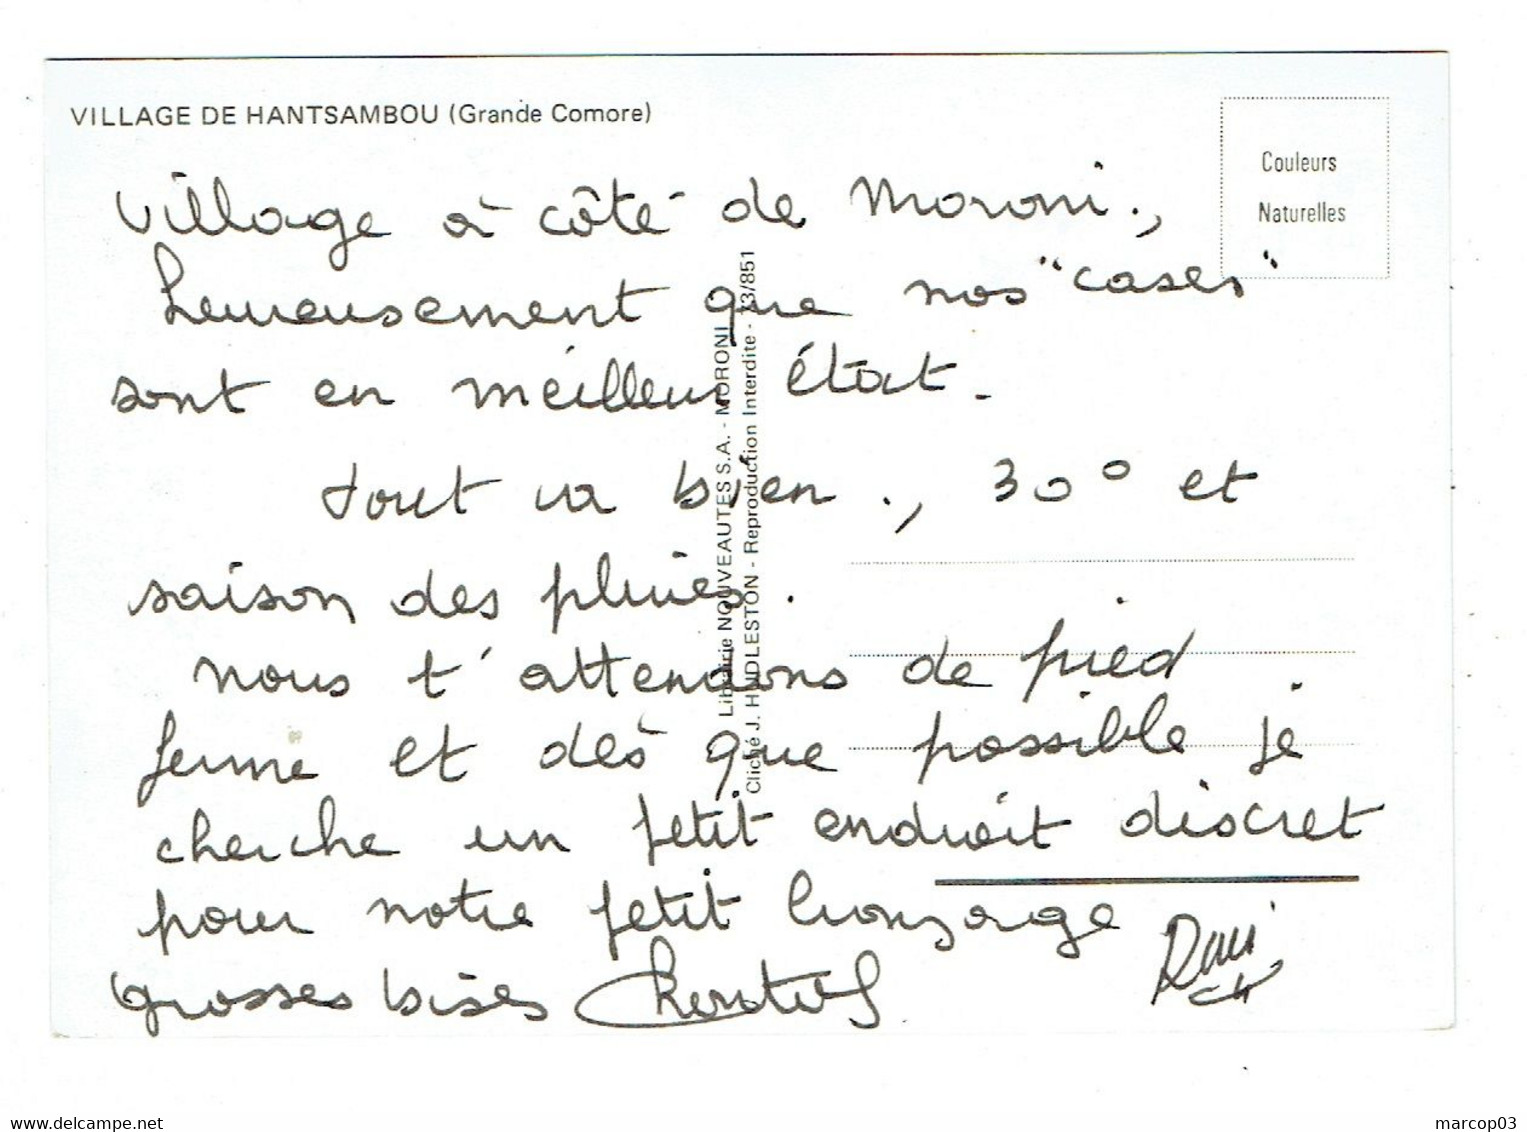 VILLAGE DE HANTSAMBOU (Grande Comore)
Couleurs
Naturelles
Village à côté de Moroni.,
heureusement que nos "cases"
sont en meilleur état.
tout va bien., 30° et
saison des pluies.
nous t'attendons de pied
ferme et dès que possible je
cherche un petit endroit discret
pour notre petit bronzage
grosses bises
Librairie NOUVEAUTES S.A. - MORONI
Cliché J. HINDLESTON - Reproduction Interdite - 73/851
marcop03